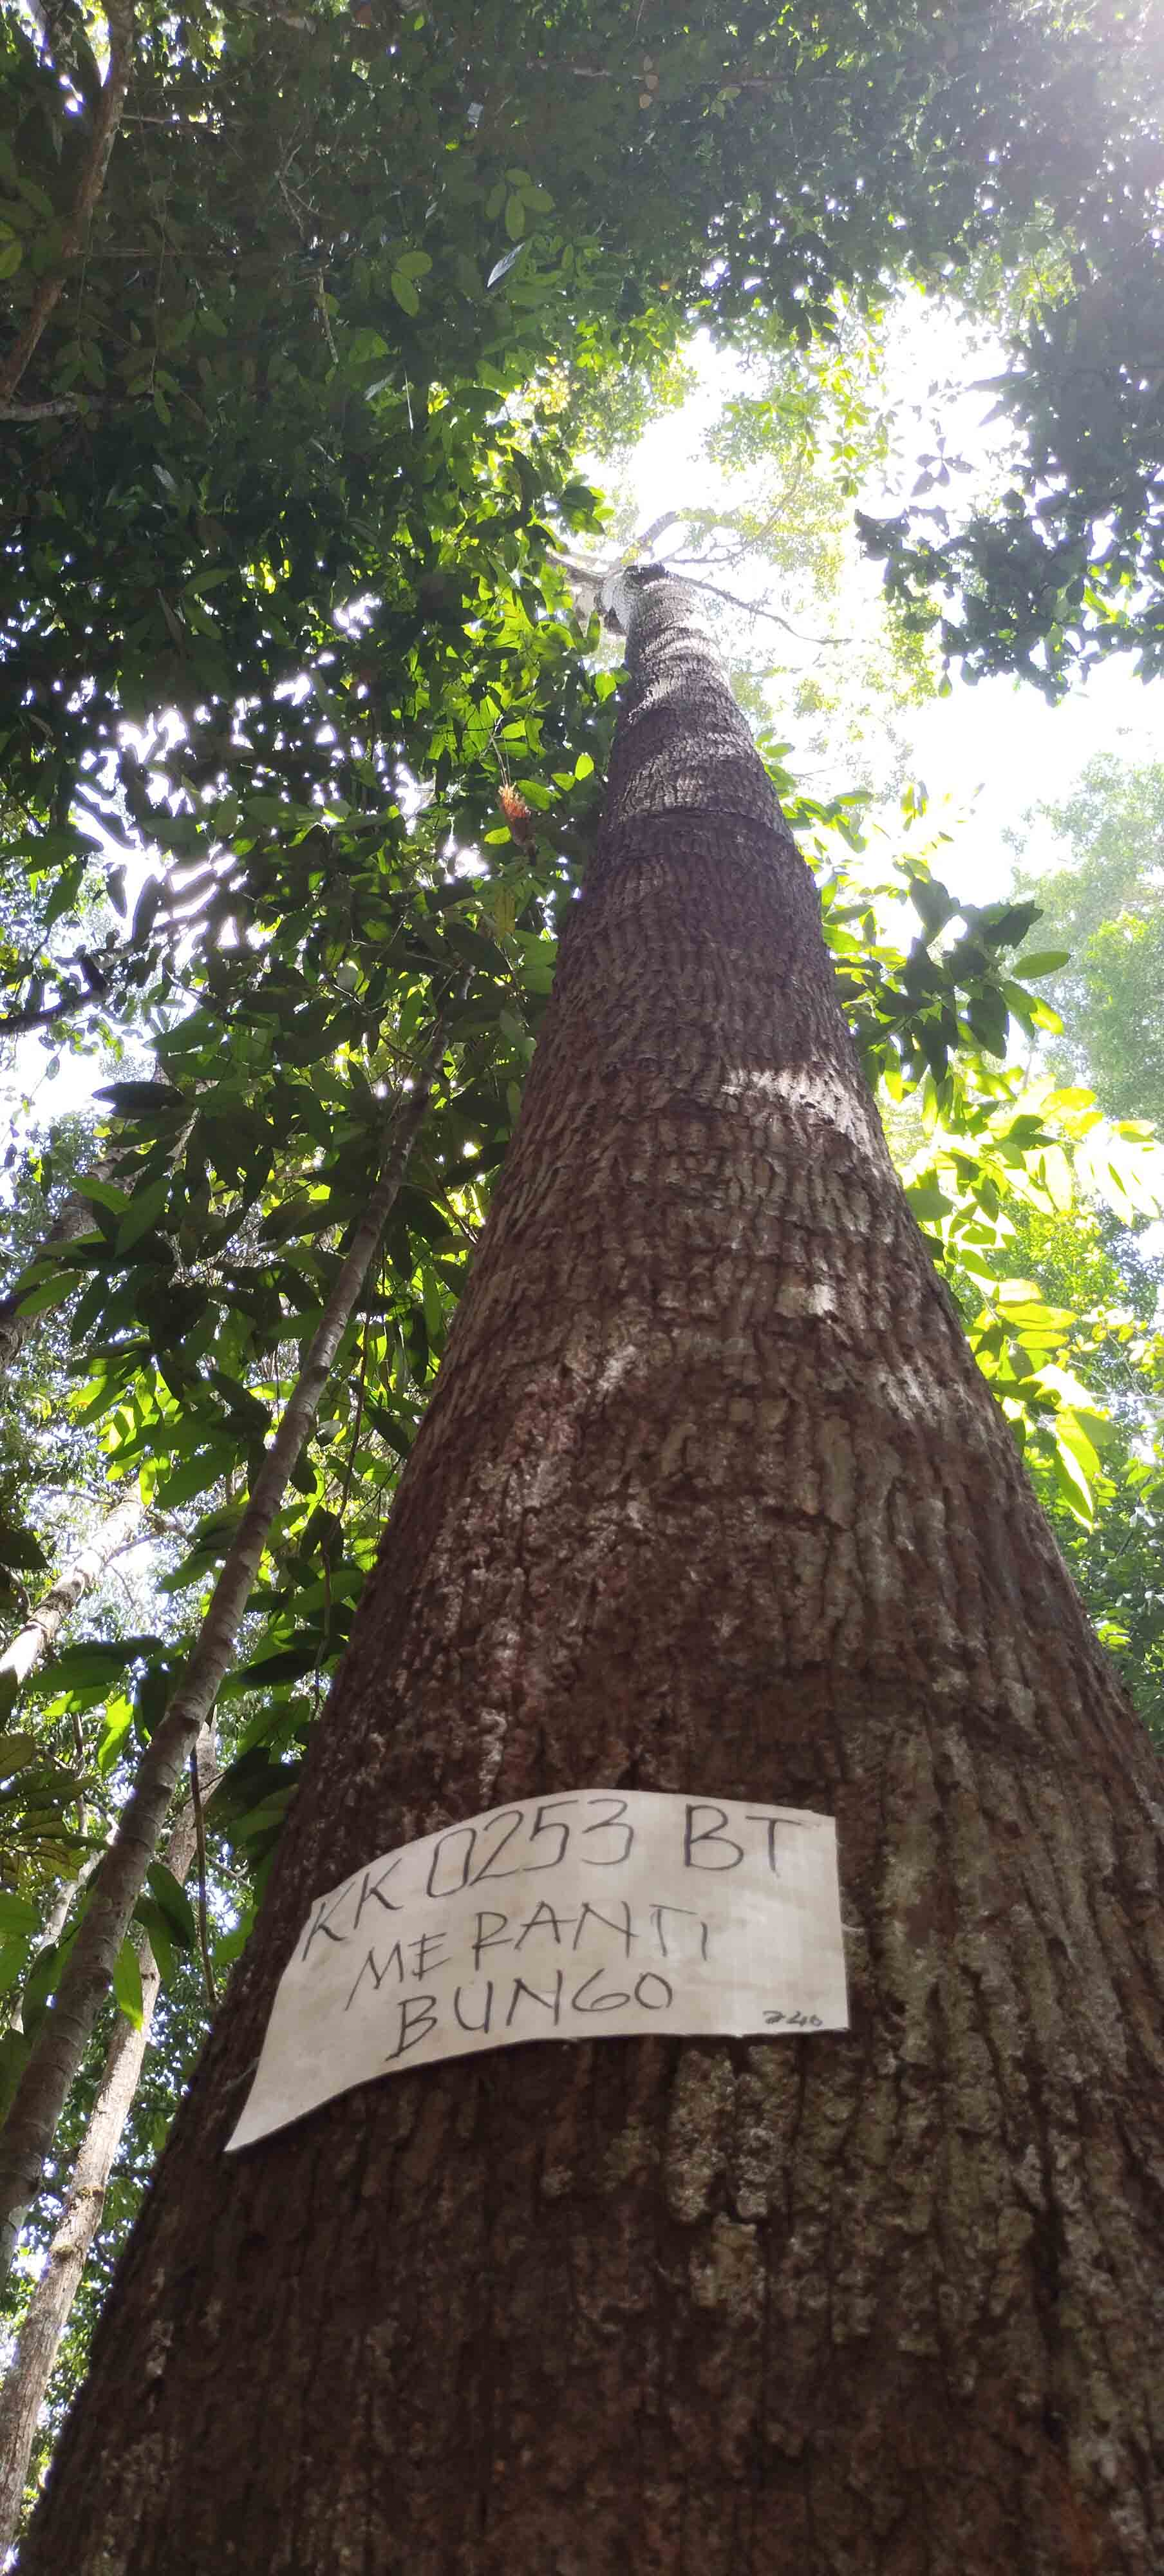 KK 0253 BT
MERANTI
BUNGO
240